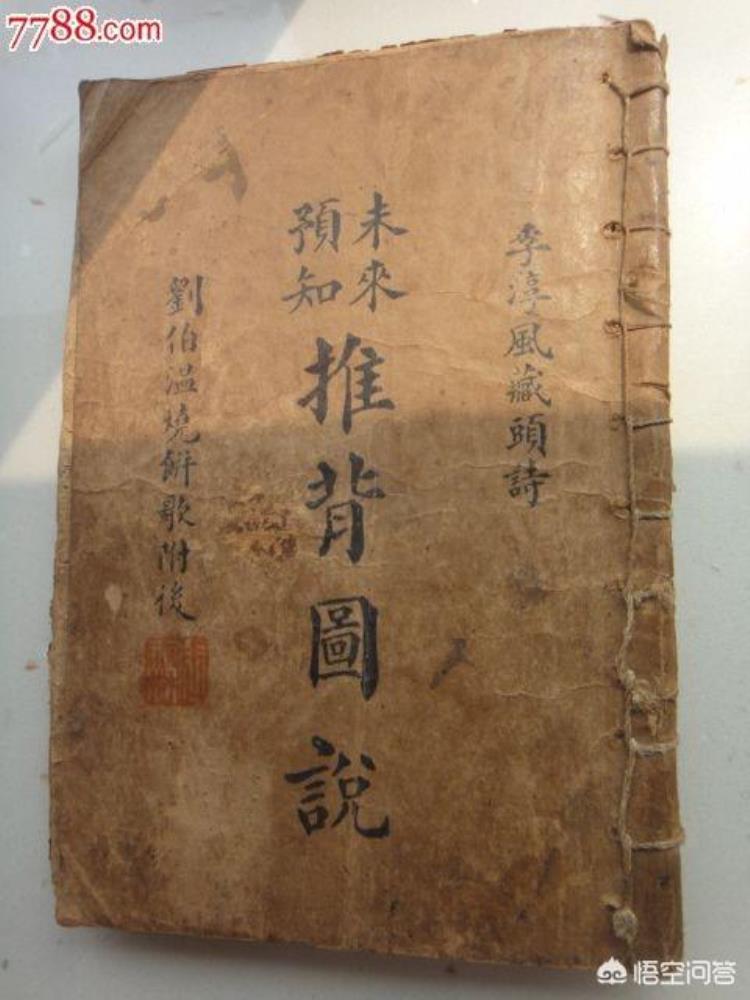 7788.com
李淳風藏頭詩
未來
預知
推背圖說
劉伯溫燒餅歌附後
悟空问答